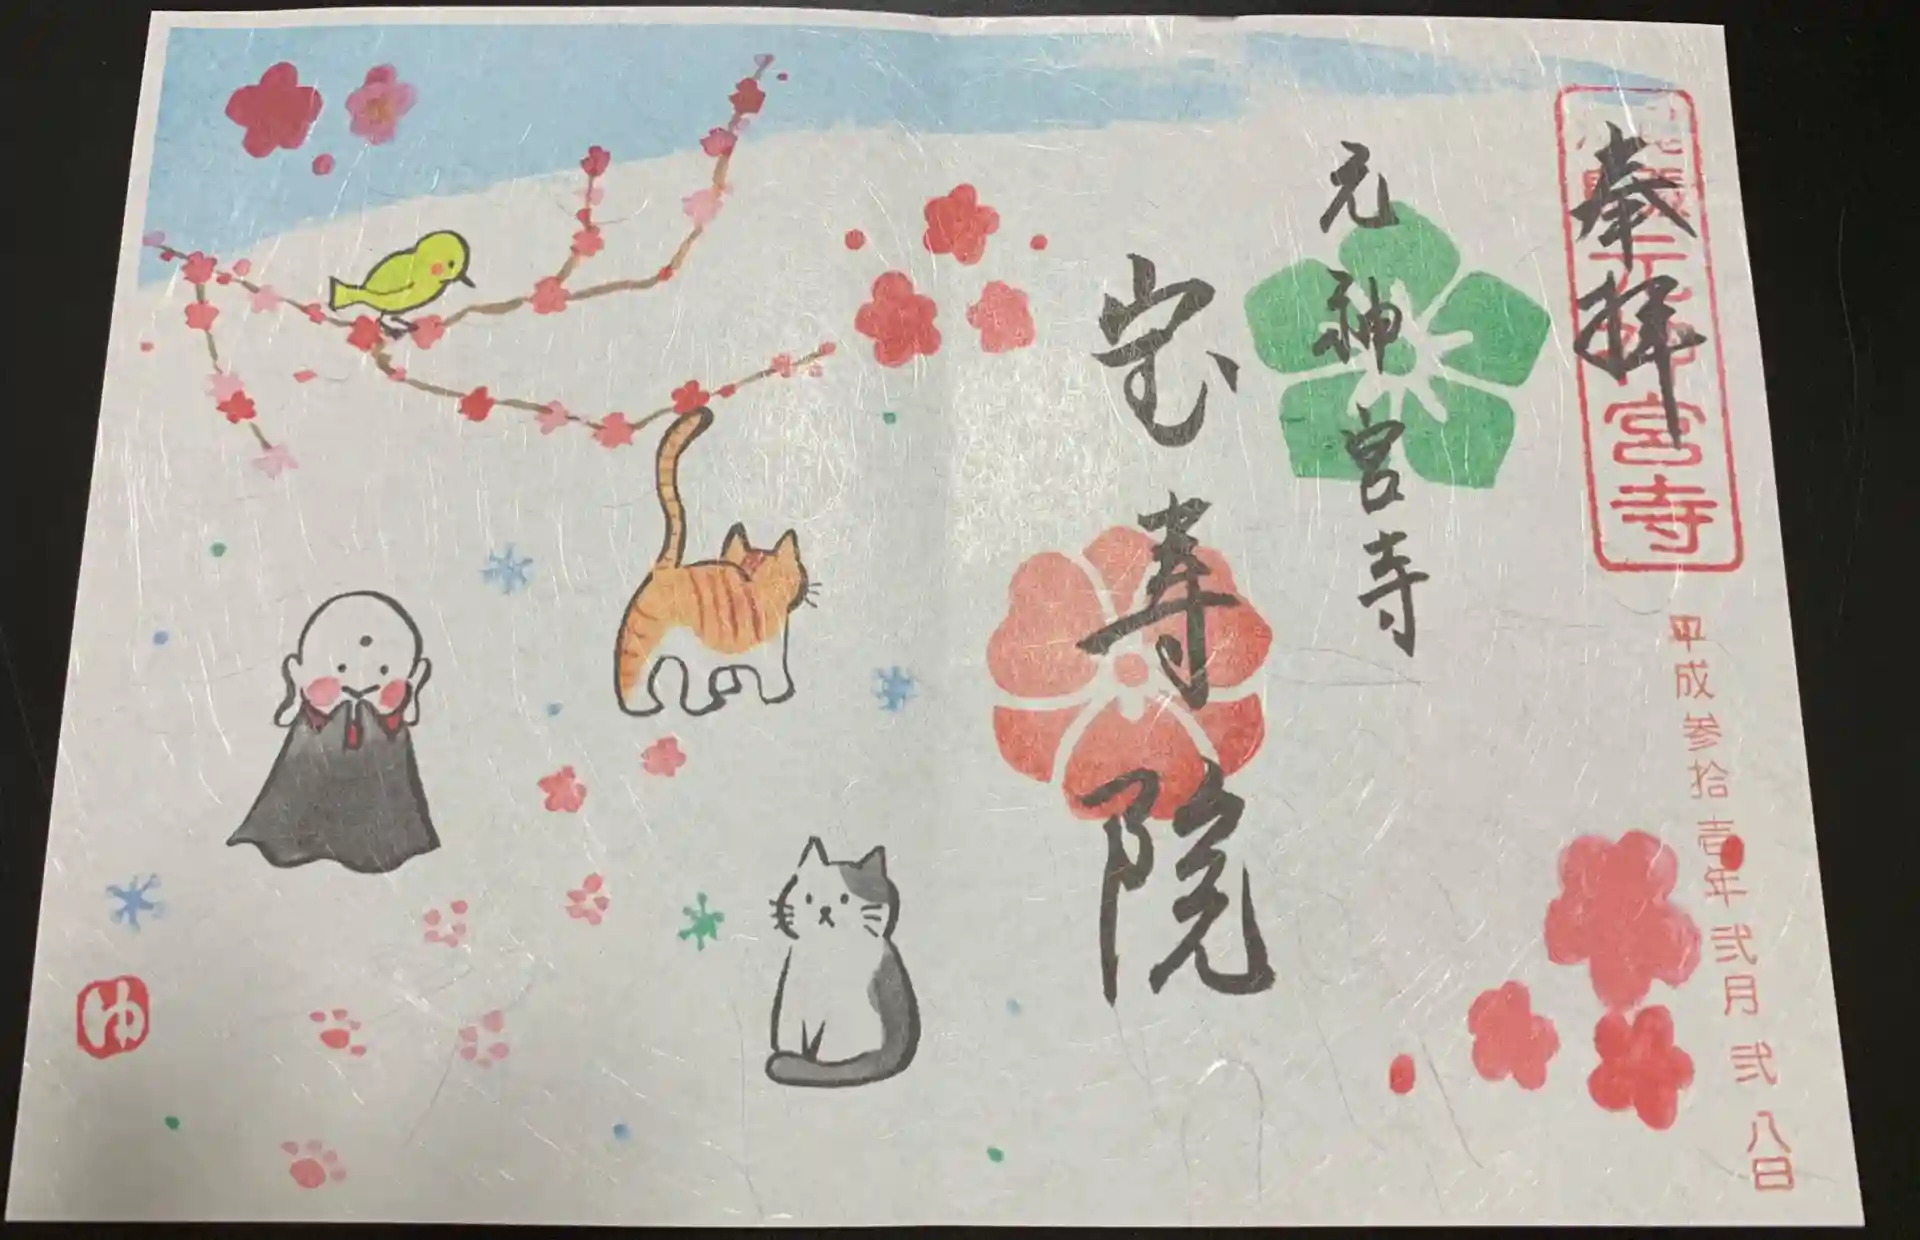 奉拝
元神宮寺
宝寿院
元神宮寺
平成参拾壱年弐月弐八日
ゆ